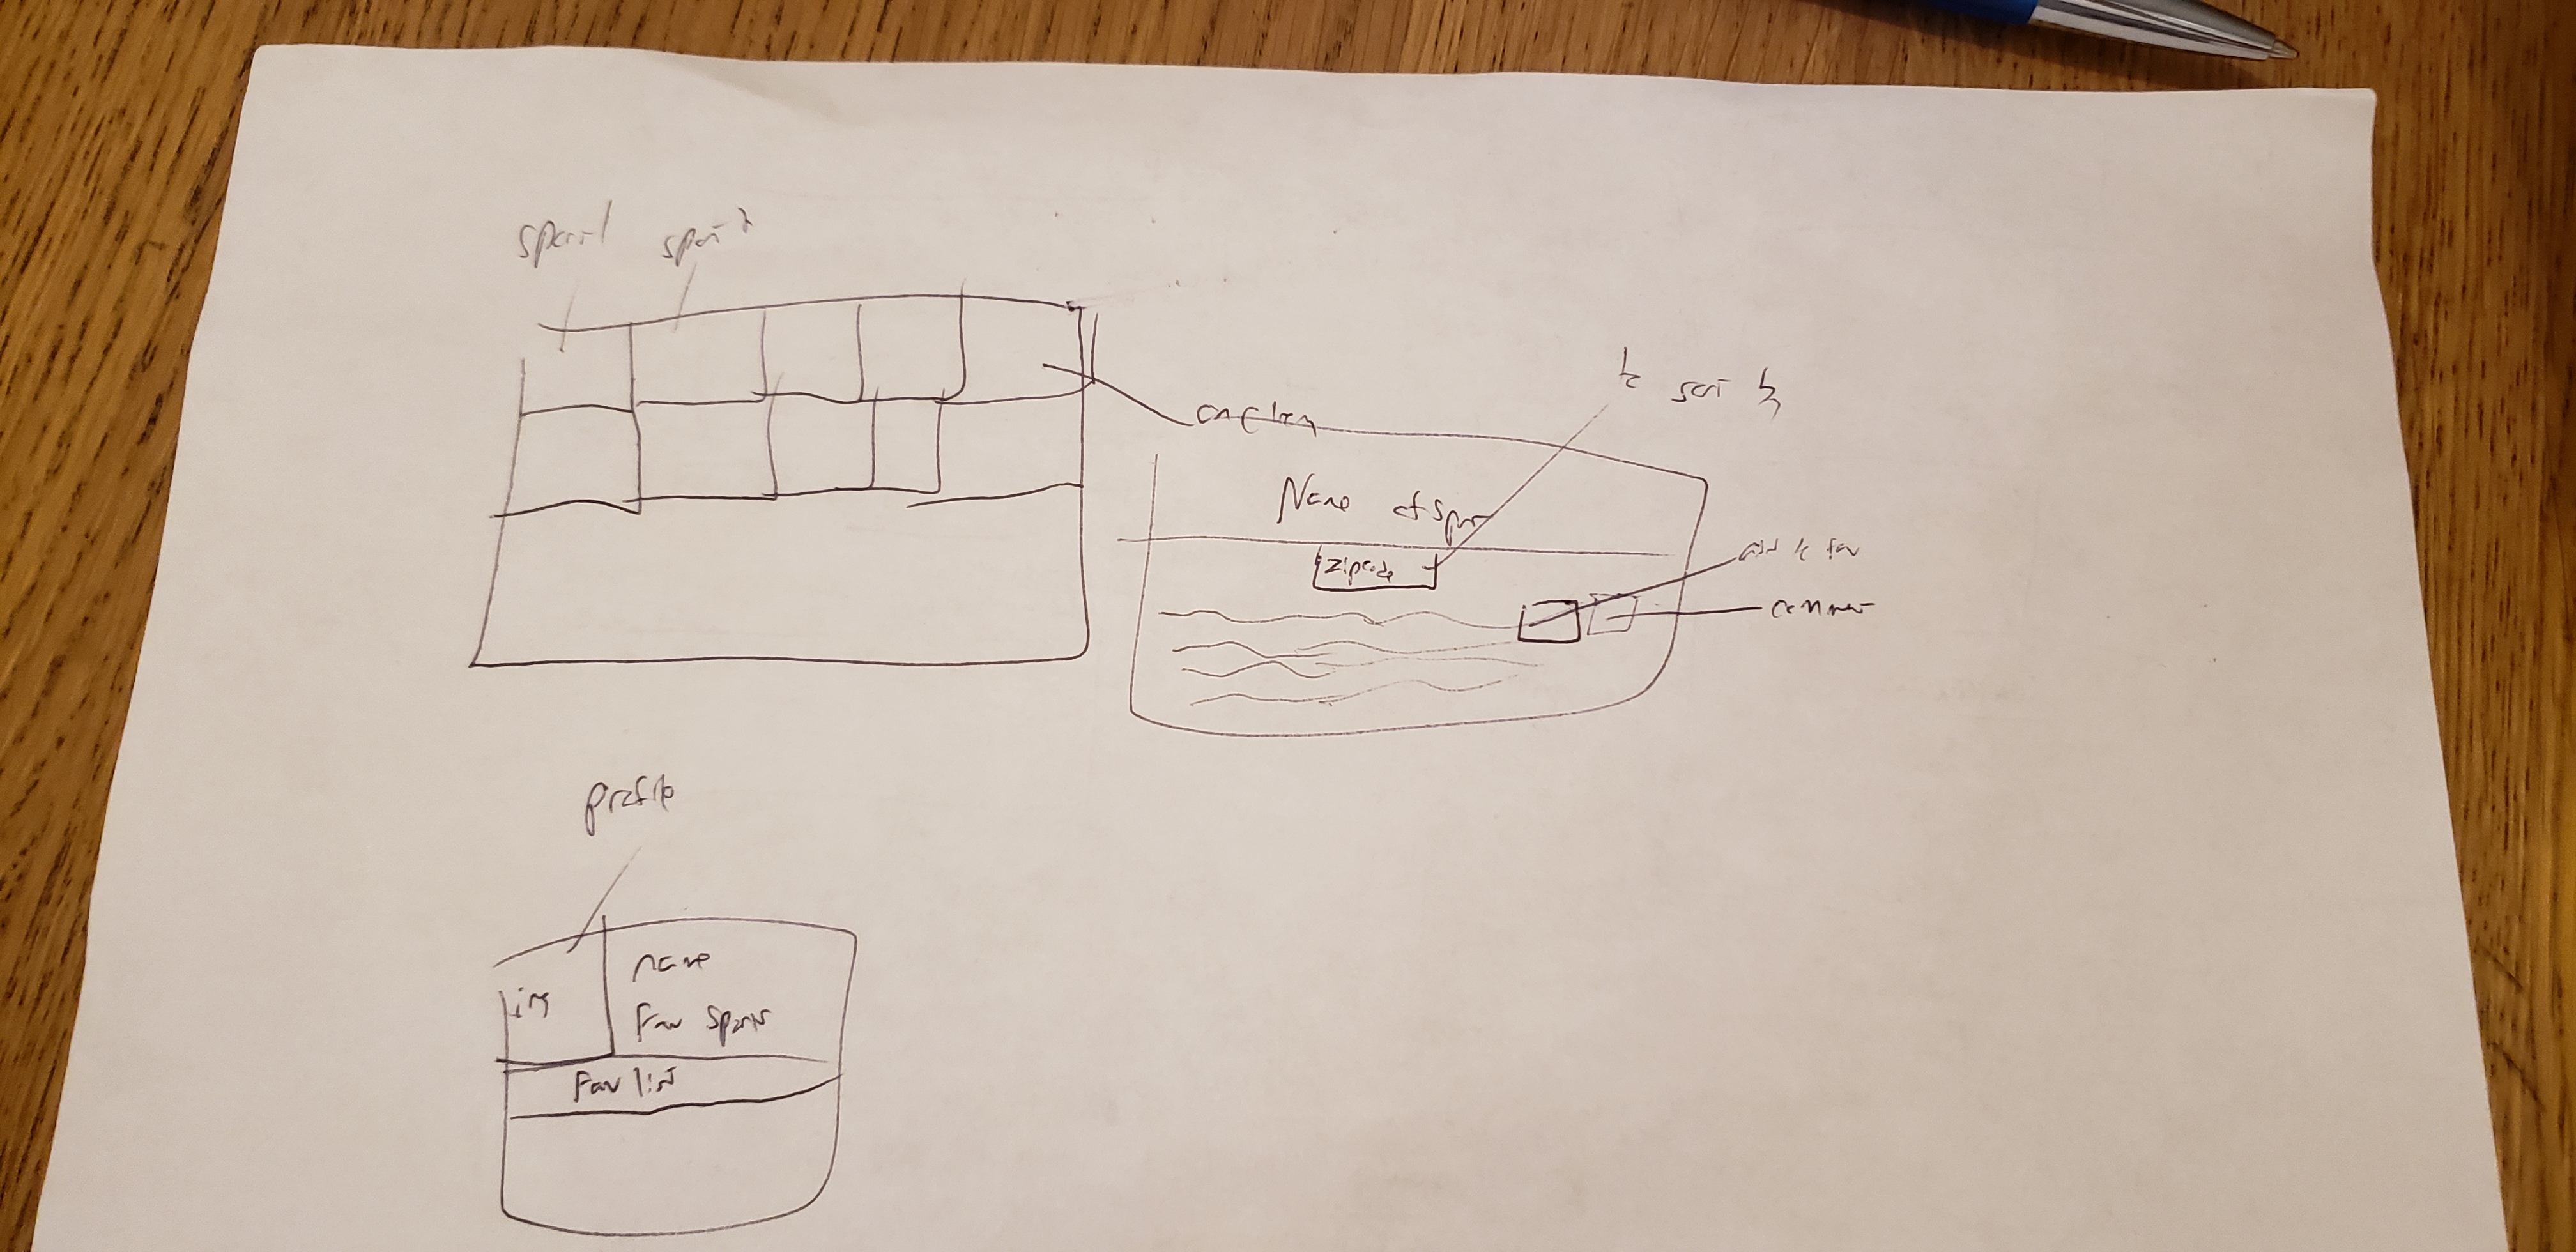 sport 1
sport 2
on click
to sort by
Name of sport
zipcode
add to fav
comment
profile
img
name
Fav sports
Fav list